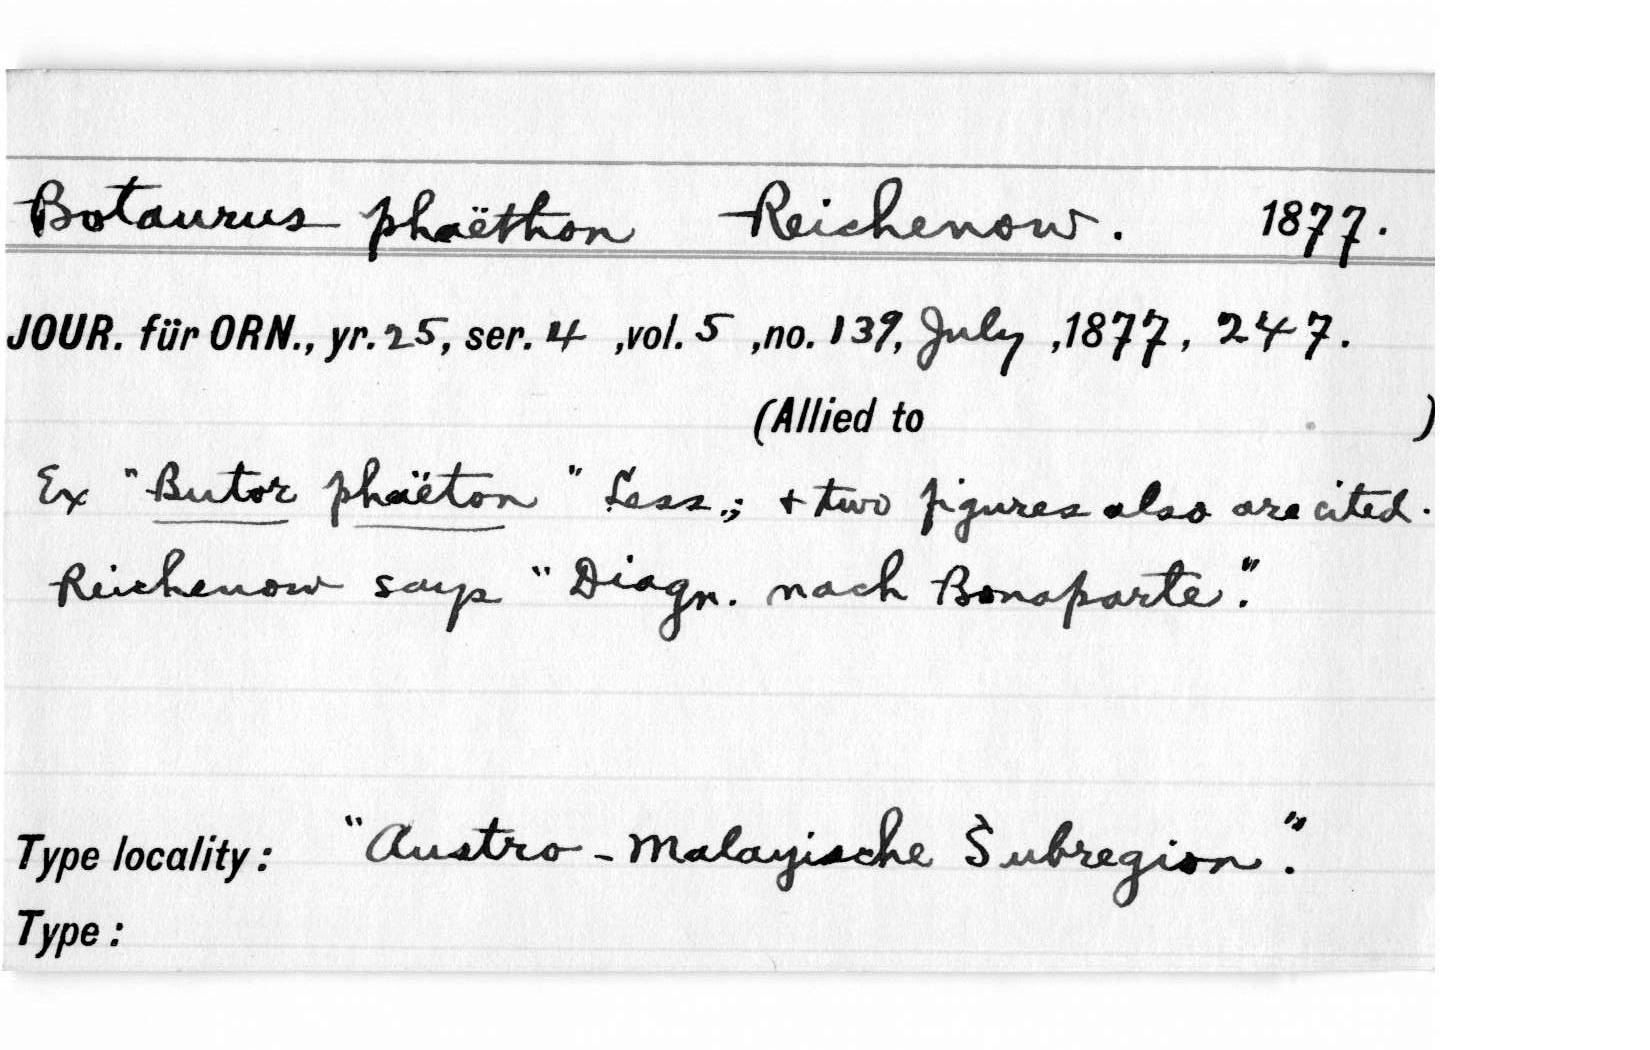 Botaurus phaëthon Reichenow. 1877.
JOUR. für ORN., yr. 25, ser. 4 ,vol. 5 ,no. 139, July ,1877, 247.
(Allied to )
Ex "Butor phaëton" Less.; + two figures also are cited.
Reichenow says "Diagn. nach Bonaparte".
Type locality: "Austro-Malayische Subregion".
Type: